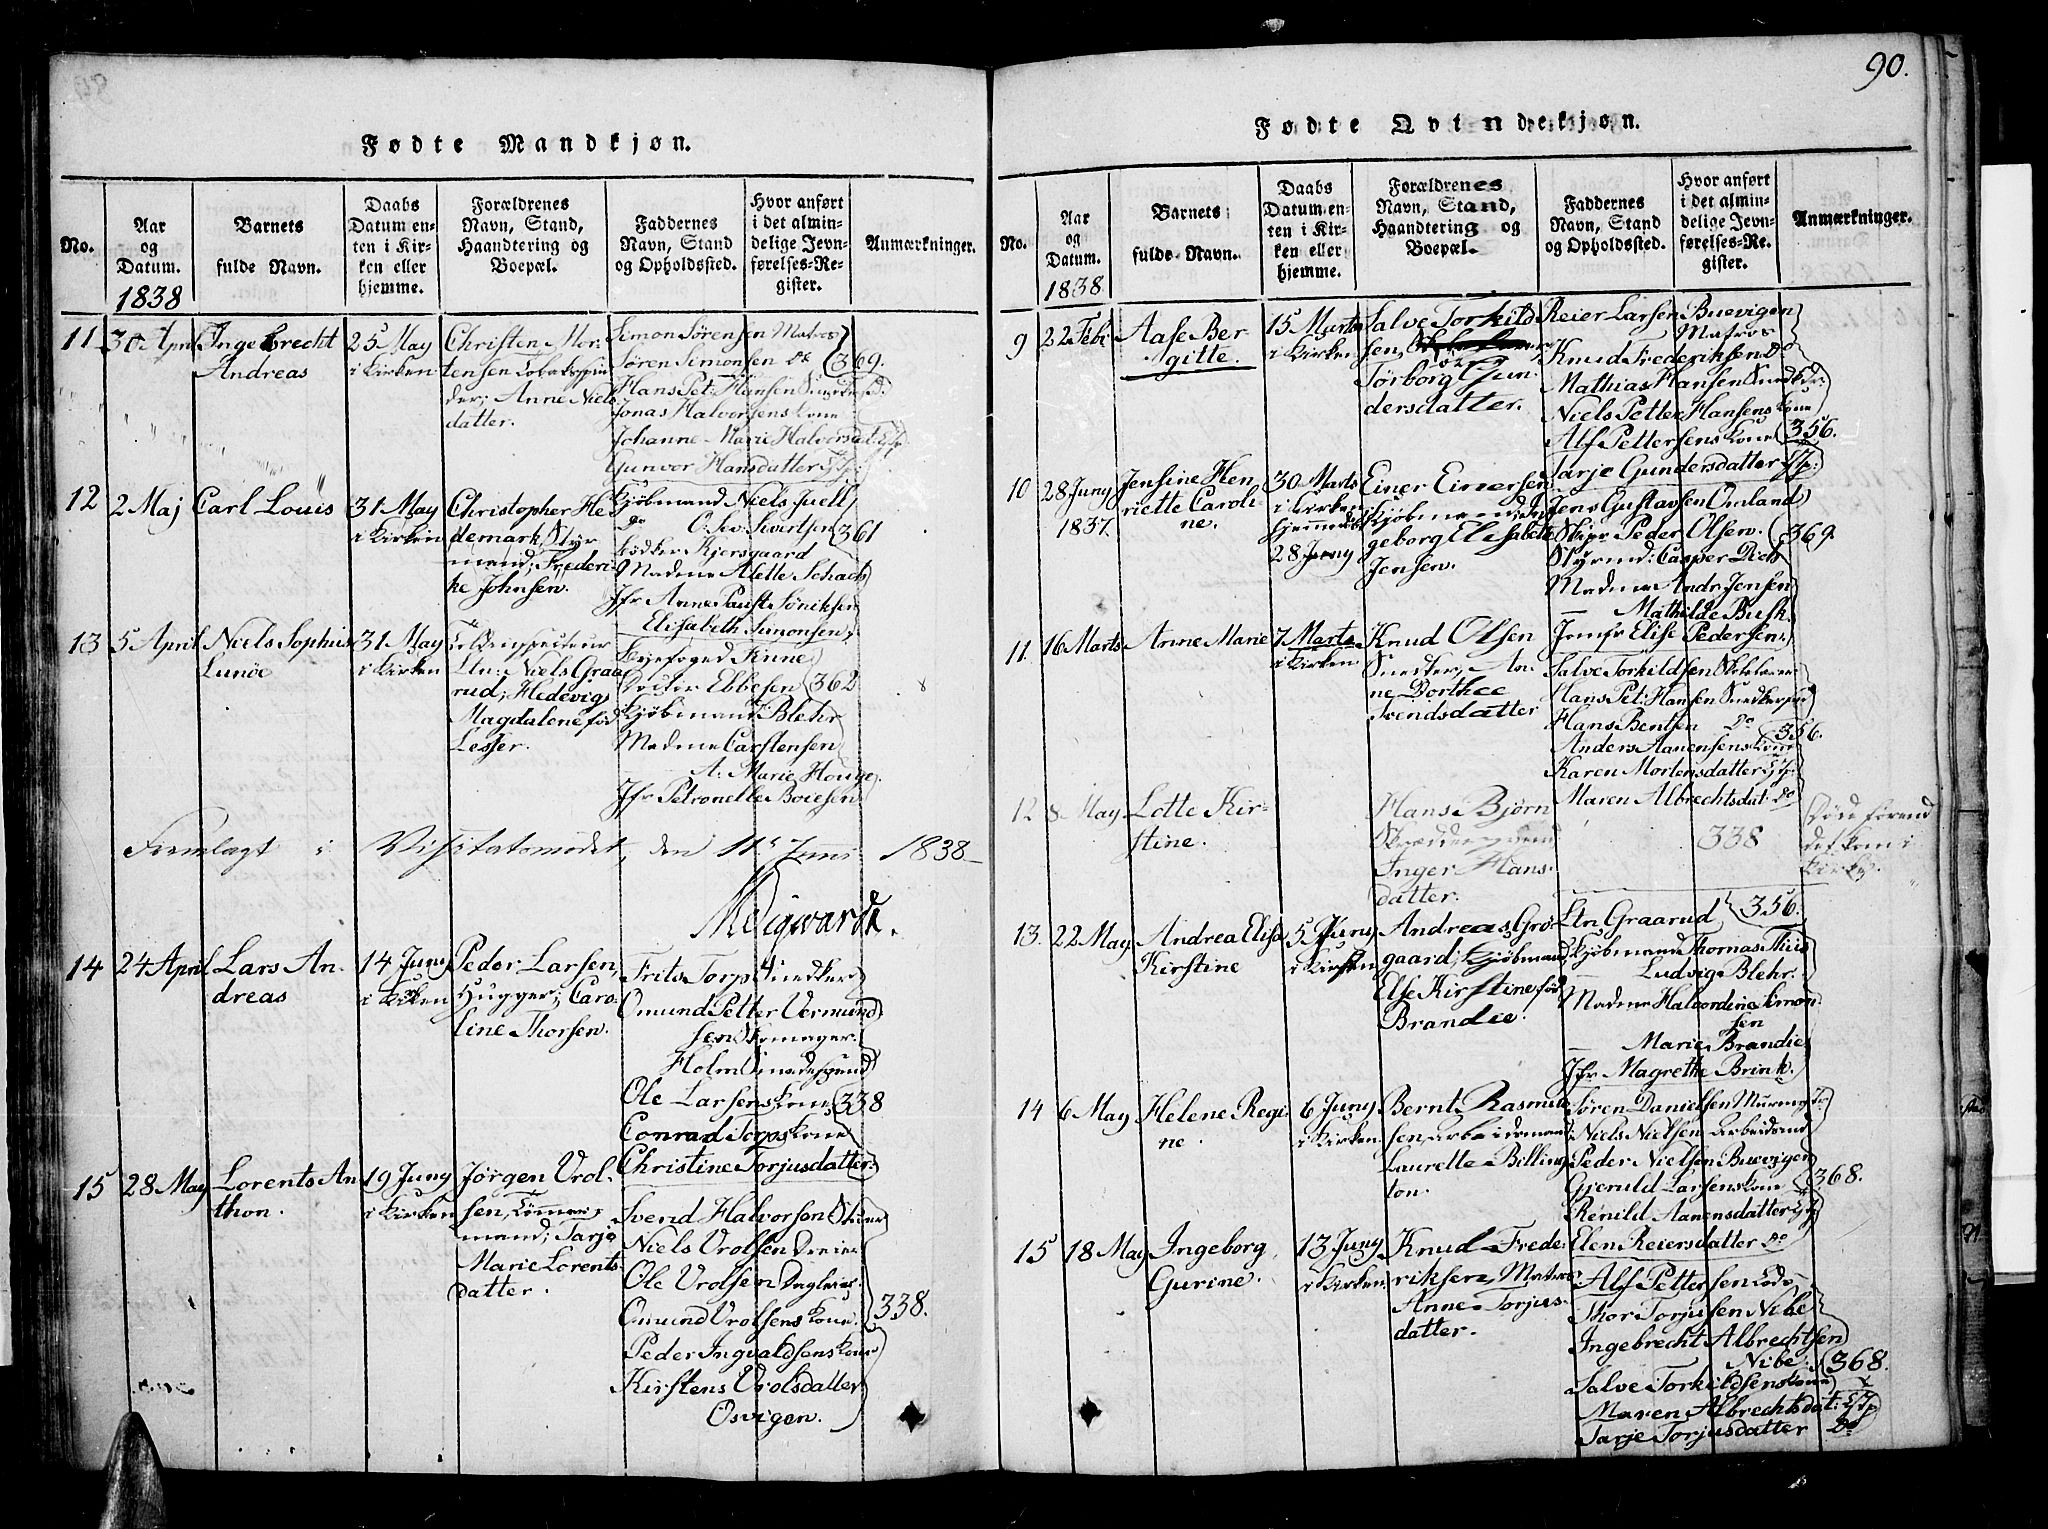 90.
Fødte Mandkjøn.
No.
Aar
og
Datum.
1838
Barnets
fulde Navn.
Daabs
Datum en-
ten i Kir-
ken eller
hjemme.
Forældrenes
Navn, Stand,
Haandtering og
Boepæl.
Faddernes
Navn, Stand
og Opholdssted.
Hvor anført
i det almin-
delige Jevn-
førelses-Re-
gister.
Anmærkninger.
11 30 April Ingebrecht
Andreas
25 May
i Kirken
Christen Mor-
tensen
der; Anne Niels
datter.
Simon Sørensen Matros
Søren Simonsen do
Hans Pet: Hansen
Jonas Halvorsens Kone
Johanne Marie Halvorsdat
Gunvor Hansdatter
369.
12 2 Maj Carl Louis
31 May
i Kirken
Christopher He-
demark, Styr
mand; Frederi-
ke Johnsen.
Kjøbmand Niels Juell
do O. Sv. Sivertsen
Kjersgaard
Madme Alette Schach
Jfr Anne
Elisabeth Simonsen
361
13 5 April Niels Sophus
Lunøe
31 May
i Kirken
Ltn: Niels Graa-
rud; Hedevig
Magdalene fød
Lesser.
Byefoged Knne
Docter Ebbesen
Kjøbmand Blehr
Madme Carstensen
A: Marie Houge
Jfr Petronelle Boiesen
362
Fremlagt i Visitatsmødet, den 11te Juni 1838
14 24 April Lars An-
dreas
14 Juny
i Kirken
Peder Larsen,
Hugger; Caro-
line Thorsen.
Frits Torp Snedker
Omund Petter Vermund
sen Skomager.
Holm Smedesvend
Ole Larsens Kone
Conrad Torps Kone
Christine Torjusdatter
338
15 28 May Lorents An
thon.
19 Juny
i Kirken
Jørgen Vrol-
sen, Tømmer-
mand; Tarje
Marie Lorents-
datter.
Svend Halvorsen
Niels Vrolsen Dreier
Ole Vrolsen Dagleier
Omund Vrolsens Kone
Peder Ingvaldsens Kone
Kirstens Vrolsdatter
Osvigen.
338.
Fødte Qvindekjøn.
No.
Aar
og
Datum.
1838
Barnets
fulde Navn.
Daabs
Datum en-
ten i Kir-
ken eller
hjemme.
Forældrenes
Navn, Stand,
Haandtering og
Boepæl.
Faddernes
Navn, Stand
og Opholdssted.
Hvor anført
i det almin-
delige Jevn-
førelses-Re-
gister.
Anmærkninger.
9 22 Febr Aase Ber-
gitte.
15 Marts
i Kirken
Salve Torkild
sen,
Tørborg Gun-
dersdatter.
Reier Larsen Buevigen
Matros
Knud Frederiksen do
Mathias Hansen
Niels Petter Hansens Kone
Alf Pettersens Kone
Tarje Gundersdatter
356.
10 28 Juny
1837.
Jensine Hen
riette Caroli
ne.
30 Marts
i Kirken
hjemmedøbt
28 Juny
Einer Einersen
Kjøbmand; In-
geborg Elisabeth
Jensen.
Jens Gustavsen Omland
Skipr Peder Olsen.
Styrmd: Casper Dich
Madme Andr. Jensen
— Mathilde Busk
Jomfr Elise Pedersen
369.
11. 16 Marts Anne Marie
7 Marts
i Kirken
Knud Olsen
Snedker, An-
ne Dorthee
Svendsdatter
Salve Torkildsen
Hans Pet: Hansen
Hans Bentsen do
Anders Aanensens Kone
Karen Mortensdatter
Maren Albrechtsdat: do
356.
12 8 May Lotte Kir-
stine.
Hans Bjørn
Inger Hans-
datter.
338
Døde forend
det kom i
Kirke.
13. 22 May Andrea Elise
Kirstine
5 Juny
i Kirken
Andreas Grø-
gaard; Kjøbmand,
Else Kirstine fød
Brandie.
Ltn Graarud
Kjøbmand Thomas Thiis
— Ludvig Blehr.
Madme Halvordine Simon
sen
— Marie Brandie
Jfr Magrethe Brink.
356.
14 6 May Helene Regi
ne
6 Juny
i Kirken
Bernt Rasmus
sen, Arbeidsmand
Laurette Billing
ton.
Søren Danielsen Murmest
Niels Nielsen Arbeidsmd
Peder Nielsen Buevigen
Gjeruld Larsens Kone
Renild Aanensdatter
Elen Reiersdatter do
368.
15 18 May Ingeborg
Gurine.
13 Juny
i Kirken
Knud Frede-
riksen, Matros
Anne Torjus-
datter.
Alf Pettersen Lods
Thor Torjusen Nibe
Ingebrecht Albrechtsen
Nibe
Salve Torkildsens Kone
Maren Albrechtsdat:
Tarje Torjusdatter do
368.